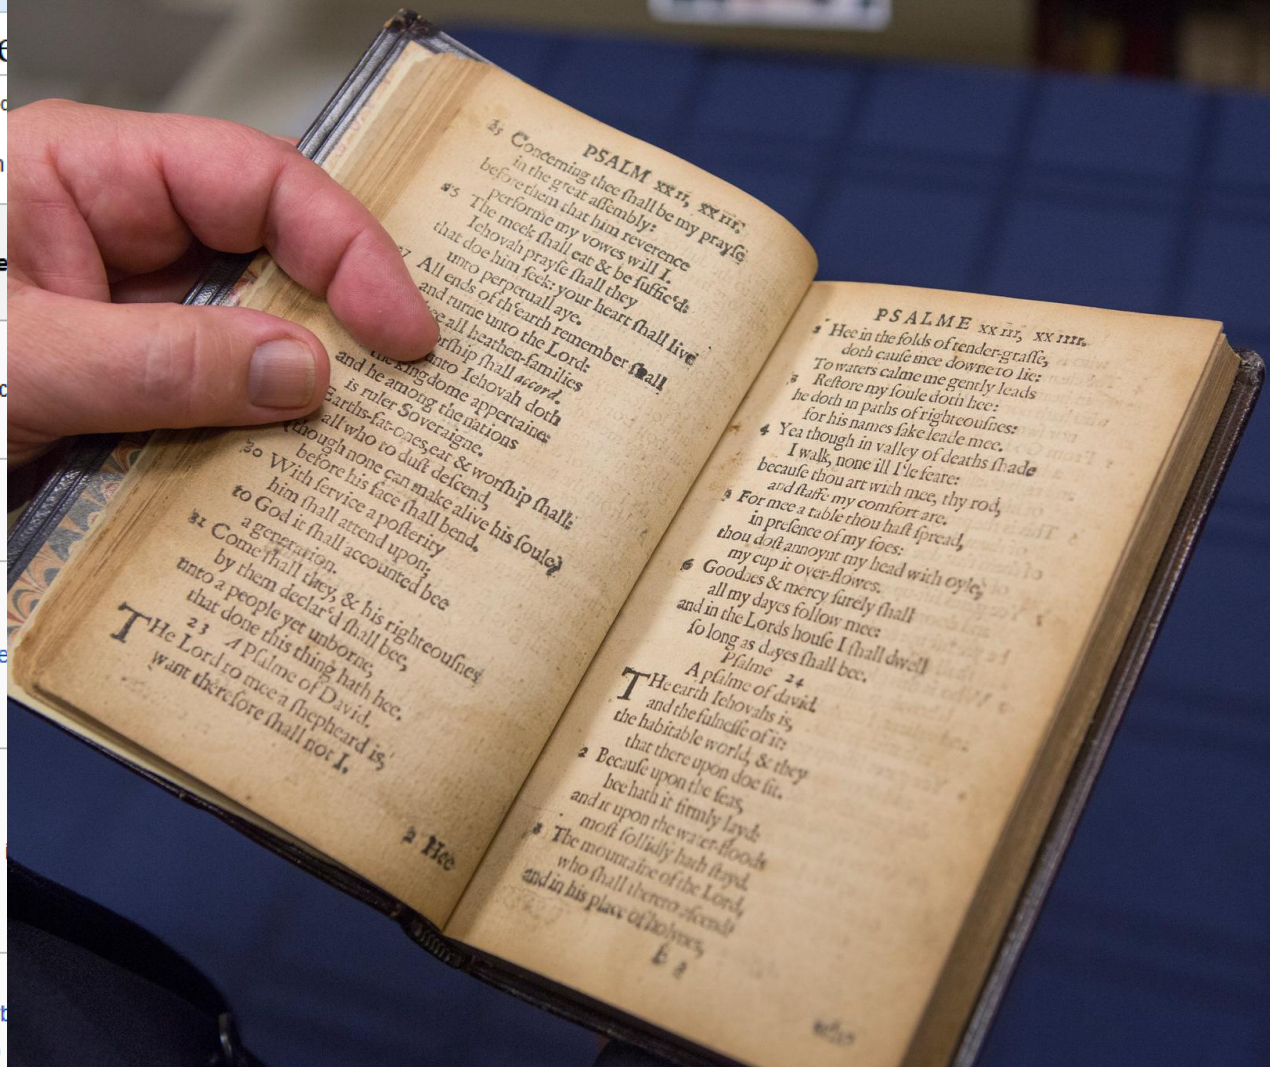 PSALM XXII, XXIII.
25 Concerning thee ſhall be my prayſe
in the great aſſembly:
before them that him reverence
performe my vowes will I.
The meek ſhall eat & be ſuffic'd:
Iehovah prayſe ſhall they
that doe him ſeek: your heart ſhall live
unto perpetuall aye.
27 All ends of th'earth remember ſhall
and turne unto the Lord:
all heathen-families
ſhall accord.
kingdome unto Iehovah doth
appertaine:
and he among the nations
is ruler Soveraigne.
Earths-fat-ones, eat & worſhip ſhall:
all who to duſt deſcend,
(though none can make alive his ſoule)
before his face ſhall bend.
30 With ſervice a poſterity
him ſhall attend upon,
to God it ſhall accounted bee
a generation.
31 Come ſhall they, & his righteouſnes
by them declar'd ſhall bee,
unto a people yet unborne,
that done this thing hath hee.
23 A Pſalme of David.
THe Lord to mee a ſhepheard is,
want therefore ſhall not I.
2 Hee
PSALME XXIII, XXIIII.
2 Hee in the folds of tender-graſſe,
doth cauſe mee downe to lie:
To waters calme me gently leads
3 Reſtore my ſoule doth hee:
he doth in paths of righteouſnes:
for his names ſake leade mee.
4 Yea though in valley of deaths ſhade
I walk, none ill I'le feare:
becauſe thou art with mee, thy rod,
and ſtaffe my comfort are.
5 For mee a table thou haſt ſpread,
in preſence of my foes:
thou doſt annoynt my head with oyle,
my cup it over-flowes.
6 Goodnes & mercy ſurely ſhall
all my dayes follow mee:
and in the Lords houſe I ſhall dwell
ſo long as dayes ſhall bee.
Pſalme 24
A pſalme of david.
THe earth Iehovahs is,
and the fulneſſe of it:
the habitable world, & they
that there upon doe ſit.
2 Becauſe upon the ſeas,
hee hath it firmly layd:
and it upon the water-floods
moſt ſollidly hath ſtayd.
3 The mountaine of the Lord,
who ſhall thereto aſcend?
and in his place of holynes,